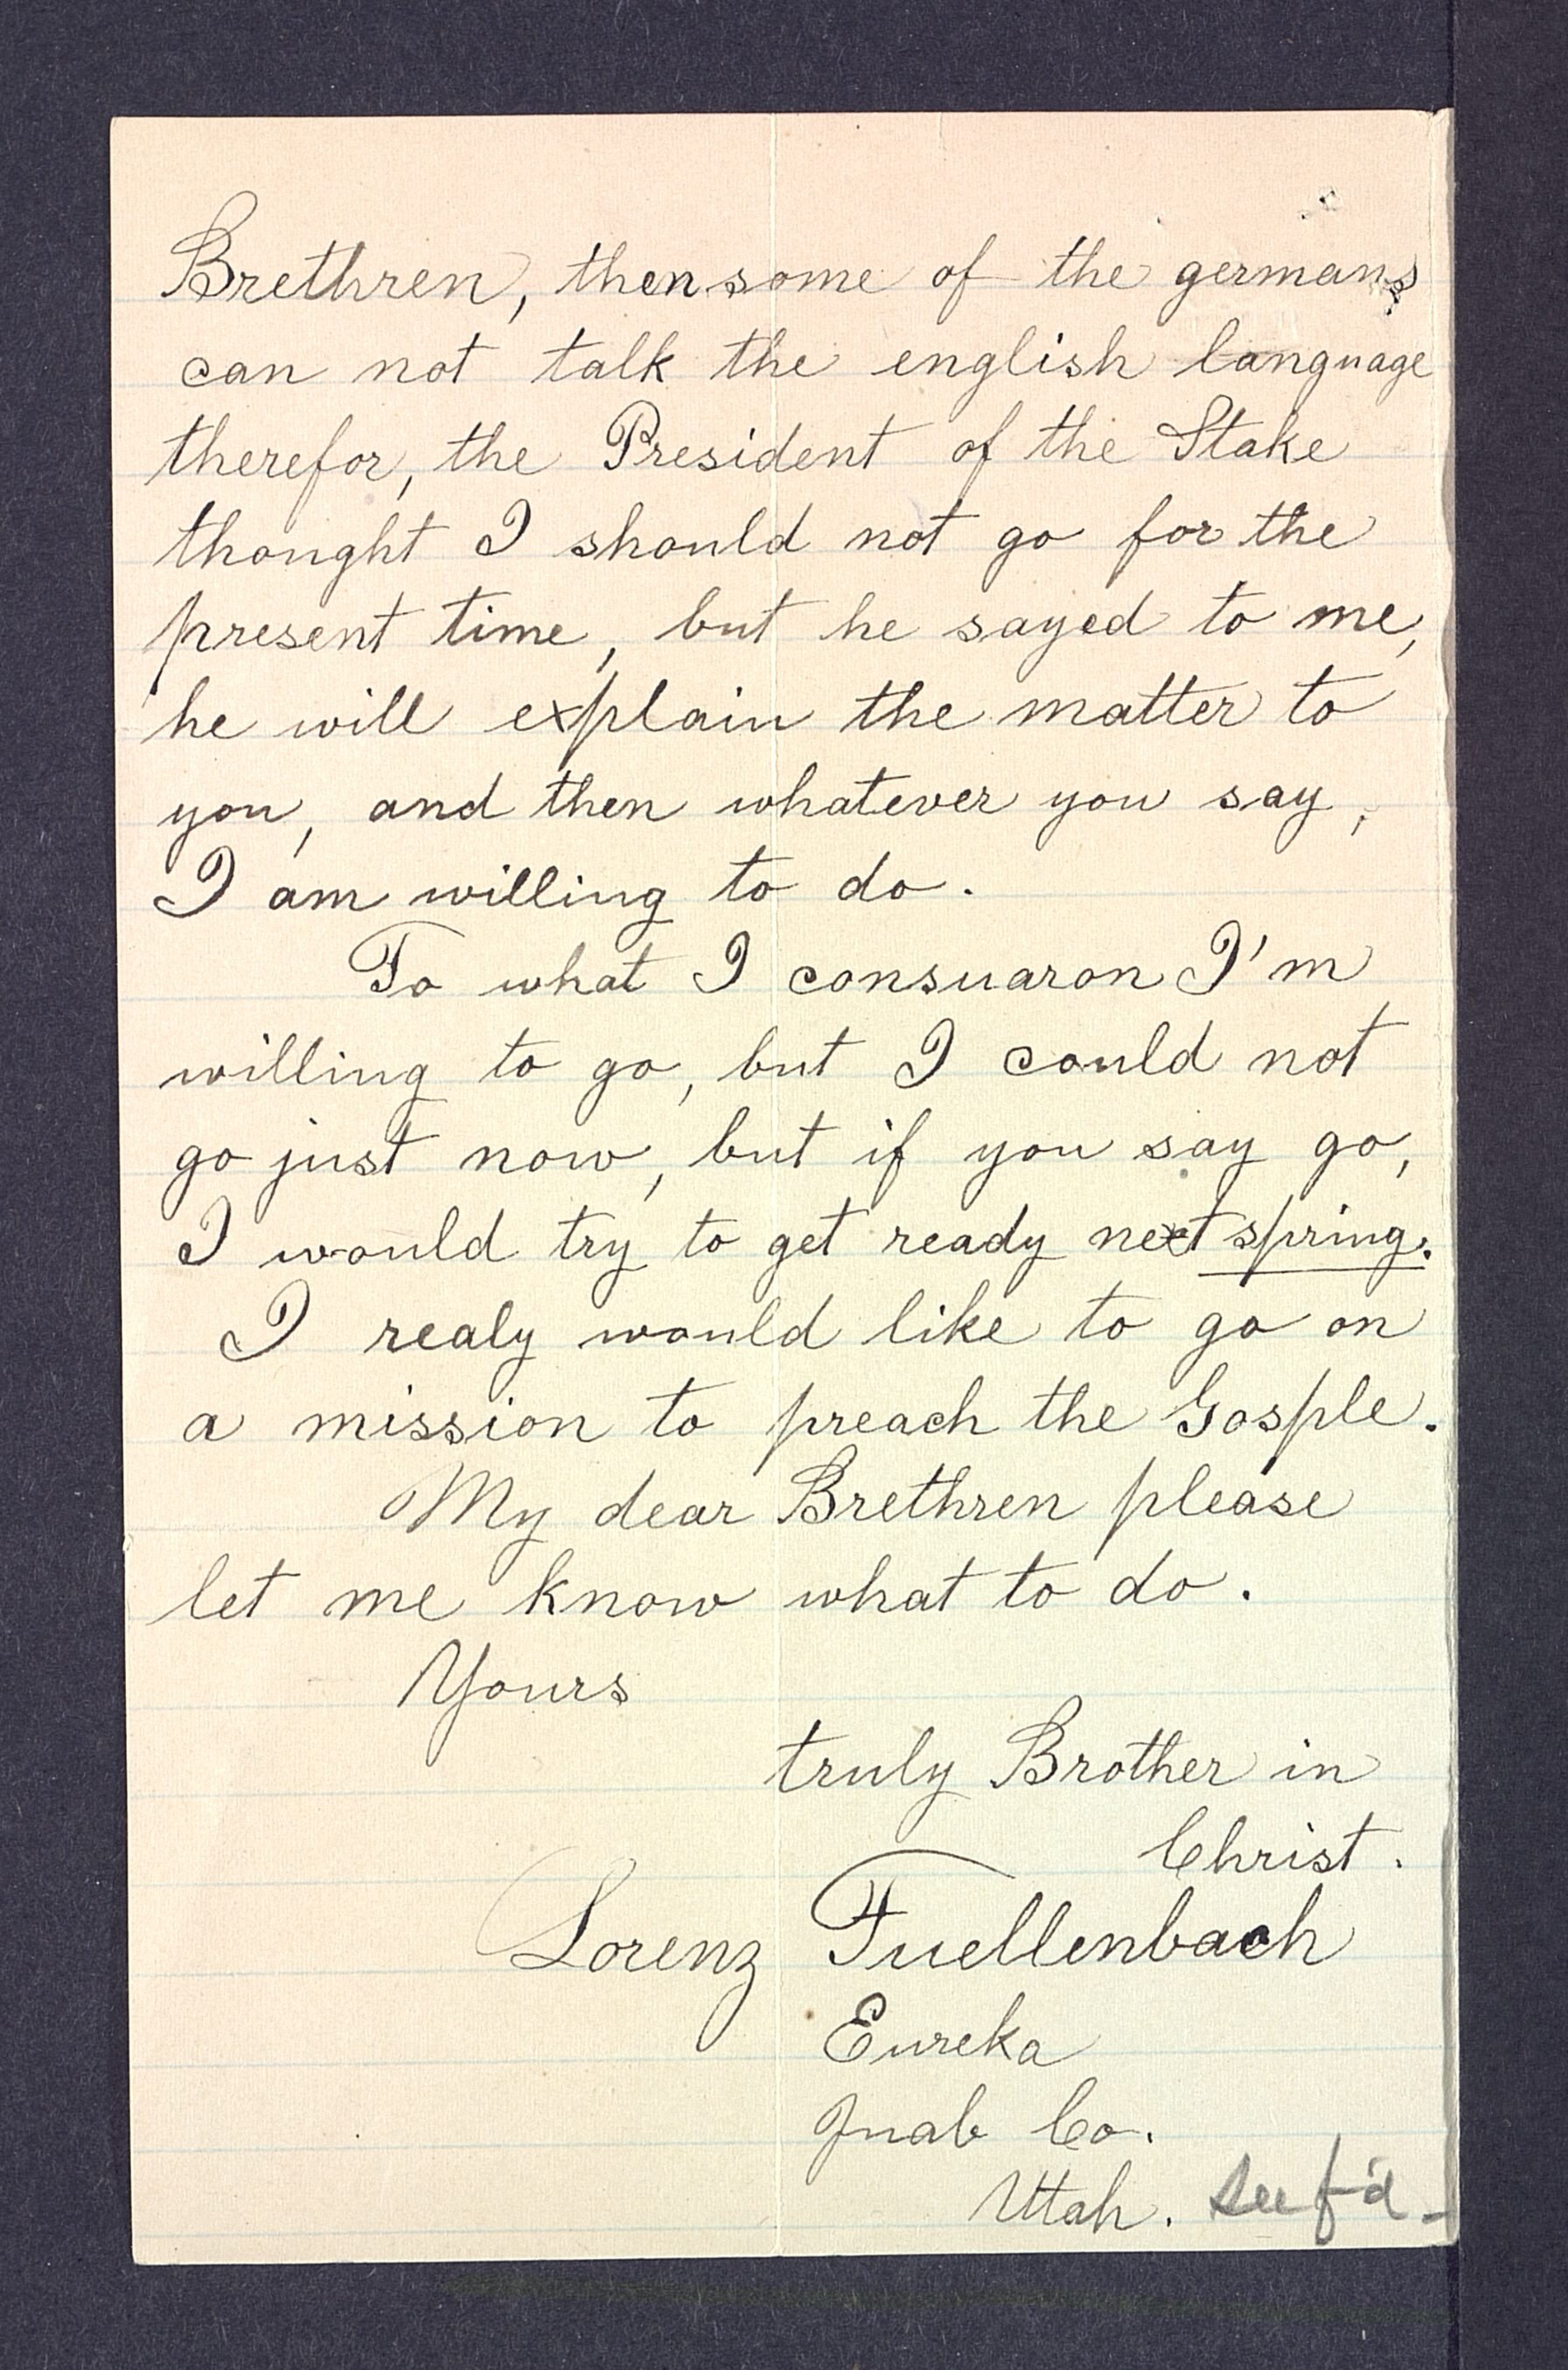 Brethren, then some of the germans
can not talk the english language
therefor, the President of the Stake
thought I should not go for the
present time, but he sayed to me,
he will explain the matter to
you, and then whatever you say,
I am willing to do.
To what I consuaron I'm
willing to go, but I could not
go just now, but if you say go,
I would try to get ready next spring.
I realy would like to go on
a mission to preach the Gosple.
My dear Brethren please
let me know what to do.
Yours
truly Brother in
Christ.
Lorenz Fuellenbach
Eureka
Juab Co.
Utah. See